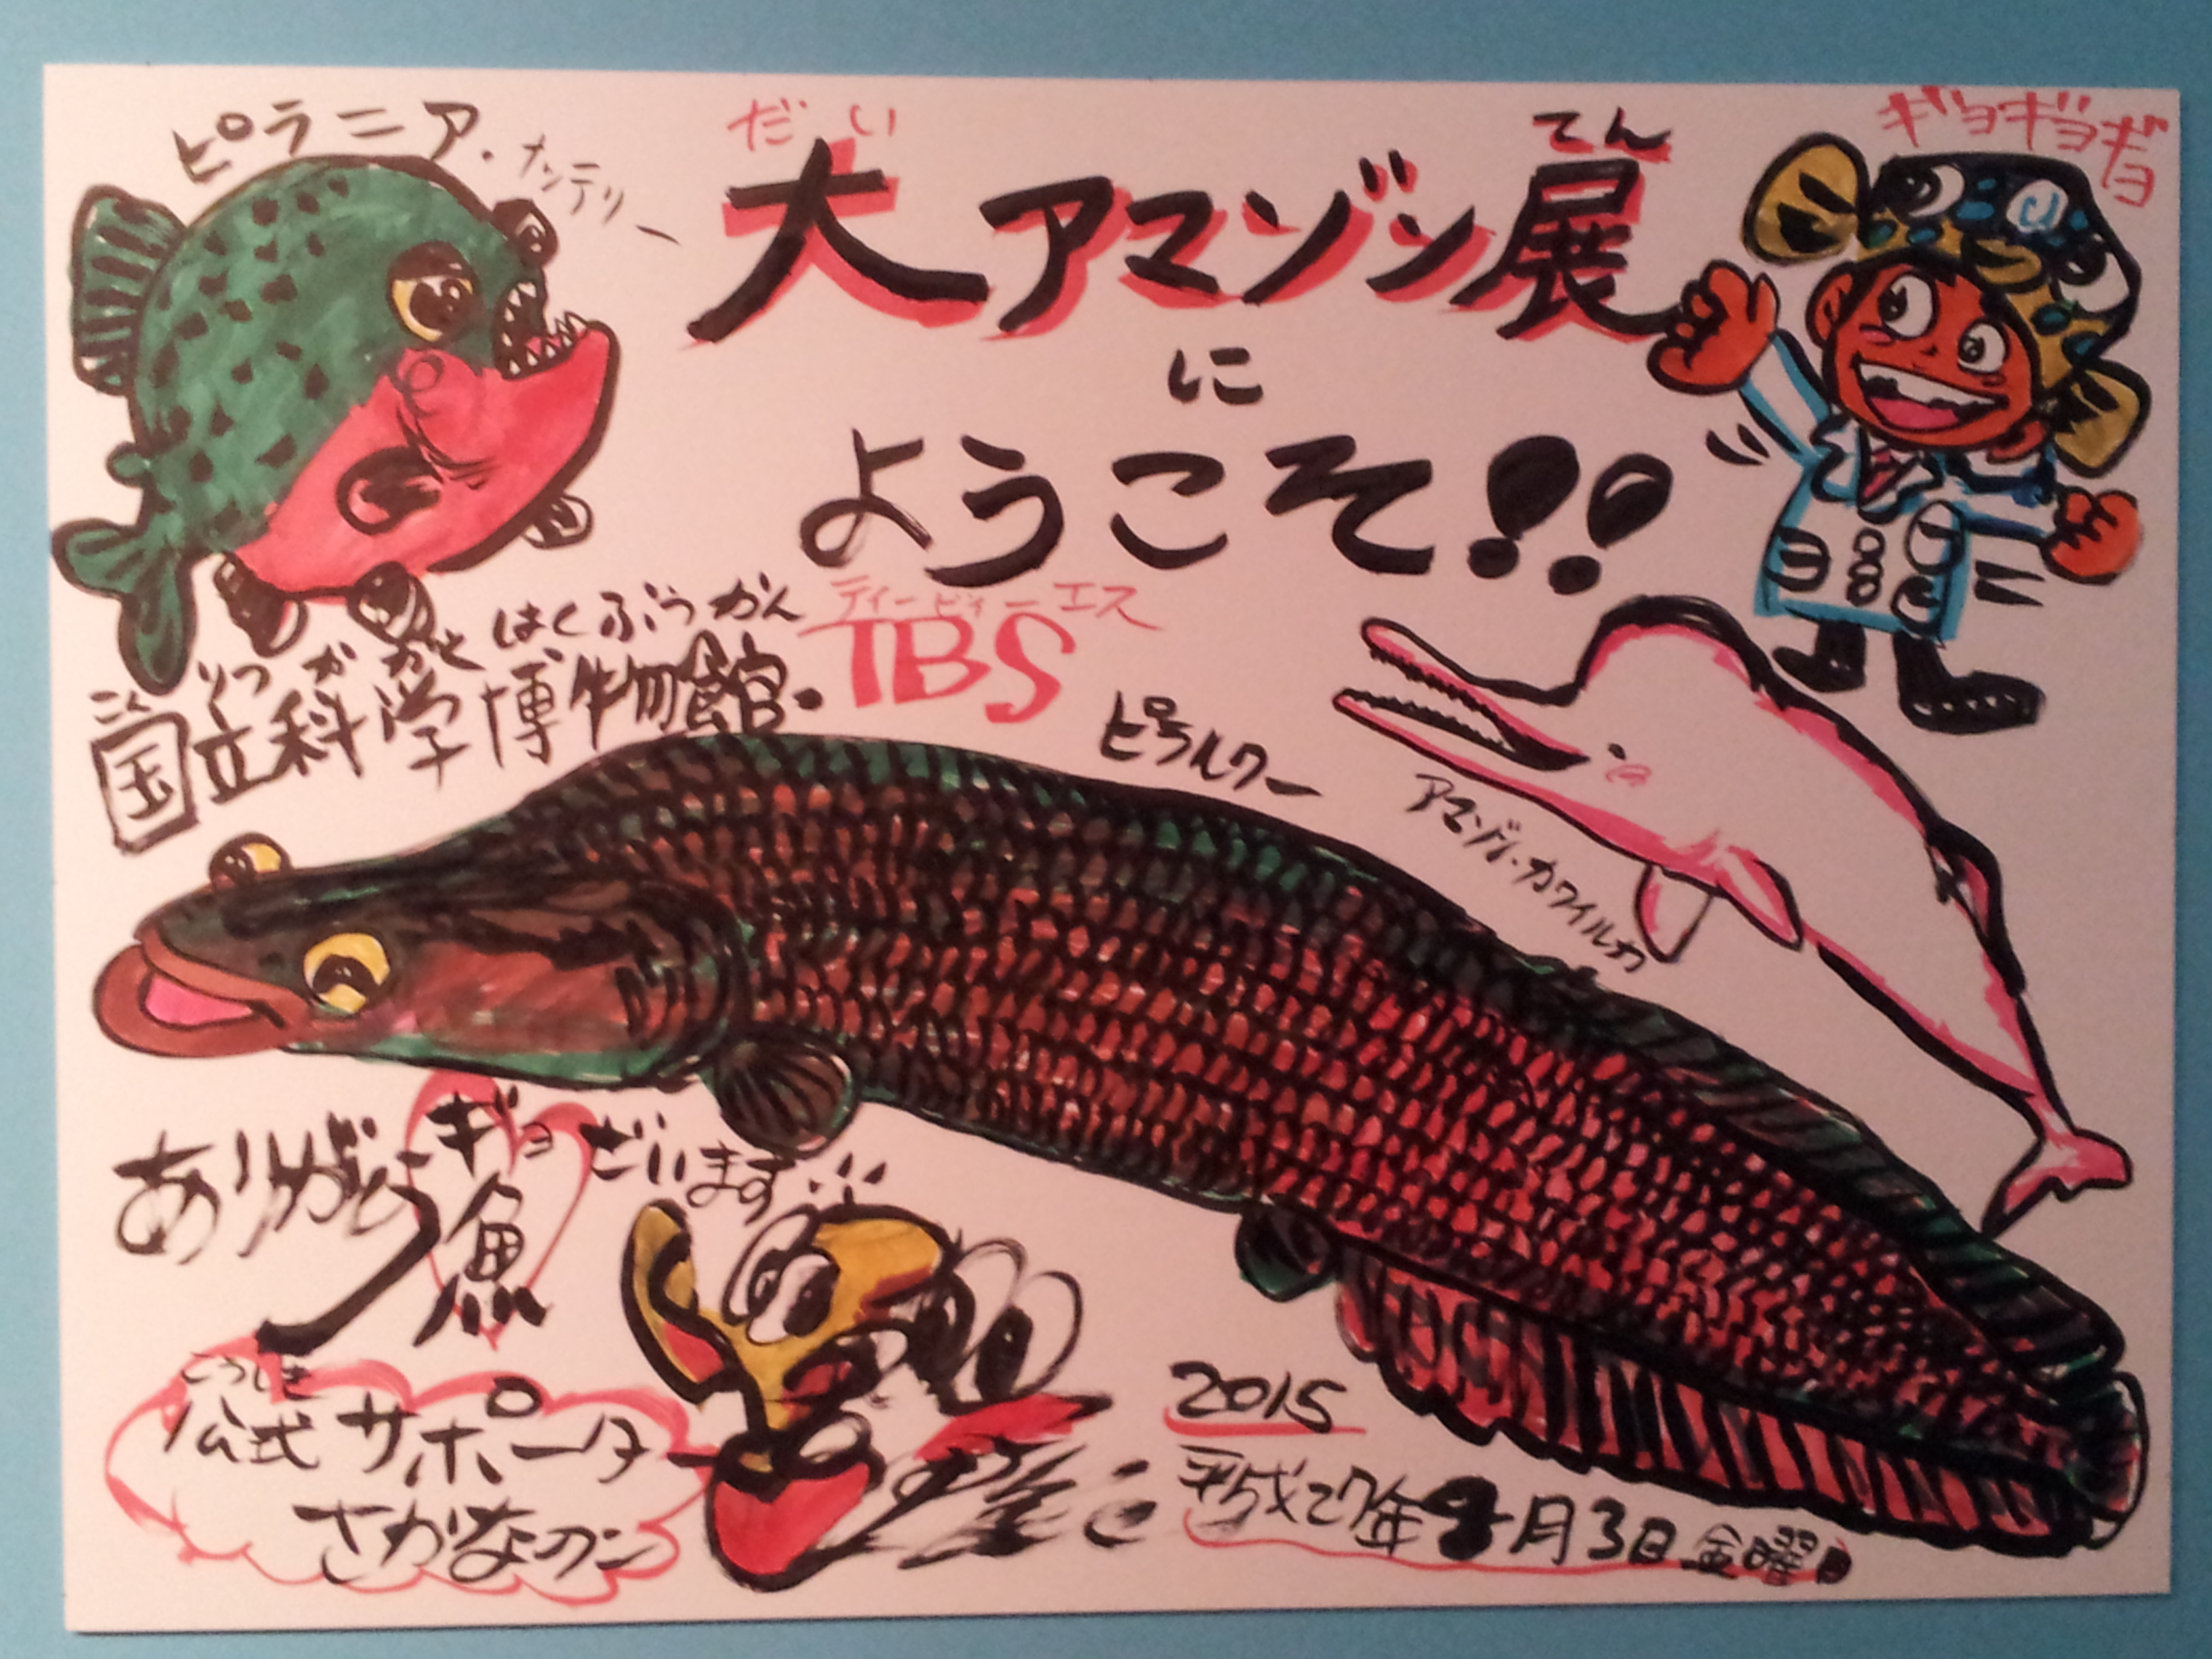 ピラニア・ナッテリー
だい てん
大アマゾン展
に
ようこそ!!
ギョギョギョ
こくりつかがくはくぶつかん
国立科学博物館・
ティービーエス
TBS
ピラルクー
アマゾン・カワイルカ
ギョ
ありがとう魚ざいます
こうしき
公式サポータ
さかなクン
2015
平成27年4月3日金曜日